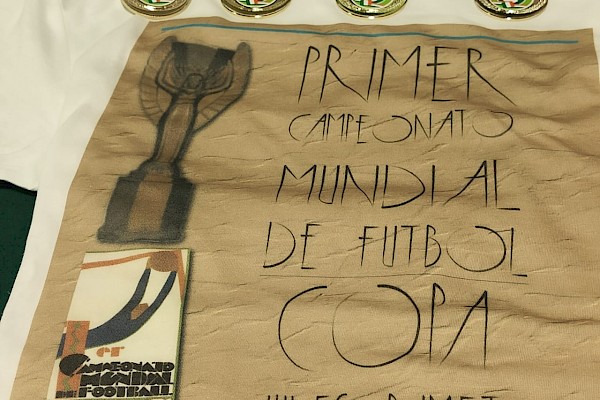 PRIMER
CAMPEONATO
MUNDIAL
DE FUTBOL
COPA
JULES RIMET
1er
CAMPEONATO
MUNDIAL
DE FOOTBALL